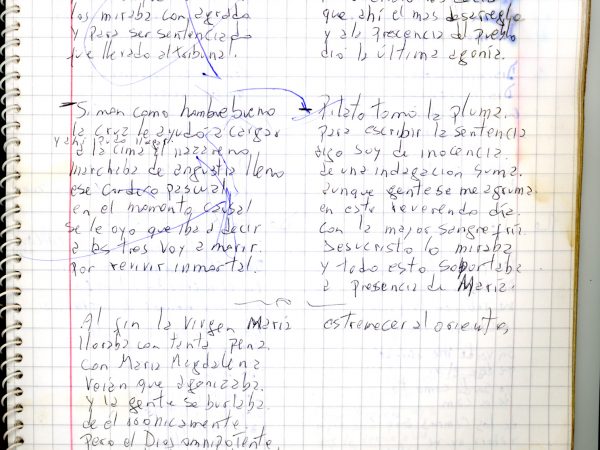 los miraba con agrado
y para ser sentenciado
fue llevado al tribunal.
que ahí el mas desarreglo
y a la precencia del pueblo
dió la última agonía.
Simon como hombre bueno
la cruz le ayudó a cargar
y ahí pudo llegar
a la cima el nazareno
marchaba de angustia lleno
ese Cordero pascual
en el momento causal
se le oyo que iba a decir
a es tres voy a morir.
por revivir inmortal.
Pilato tomó la pluma
para escribir la sentencia
digo soy de inocencia
de una indagacion suma.
aunque gente se me agruma.
en este reverendo dia.
con la mayor sangre fria
Jesucristo lo miraba
y todo esto soportaba
a presencia de María.
Al fin la virgen María
lloraba con tanta pena
con Maria Magdalena
veian que agonizaba.
y la gente se burlaba
de él irónicamente.
pero el Dios omnipotente,
estremecer al oriente,